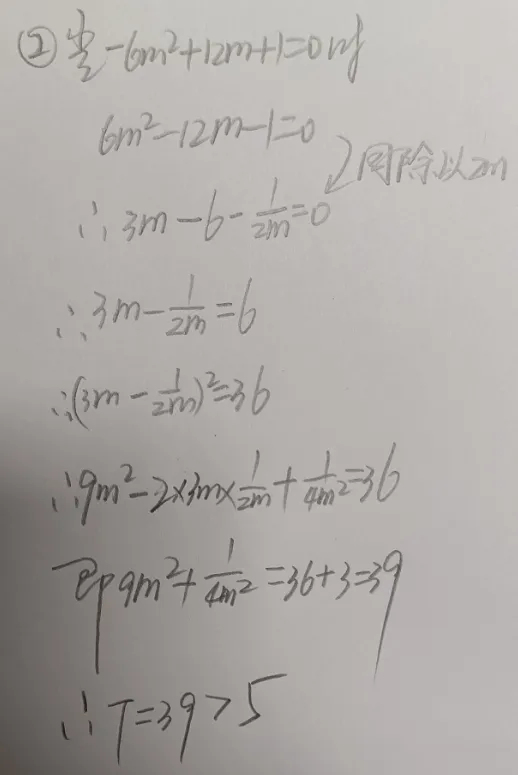 ②当-6m²+12m+1=0时
6m²-12m-1=0
同除以2m
∴3m-6-1/2m=0
∴3m-1/2m=6
∴(3m-1/2m)²=36
∴9m²-2×3m×1/2m+1/4m²=36
即9m²+1/4m²=36+3=39
∴T=39>5